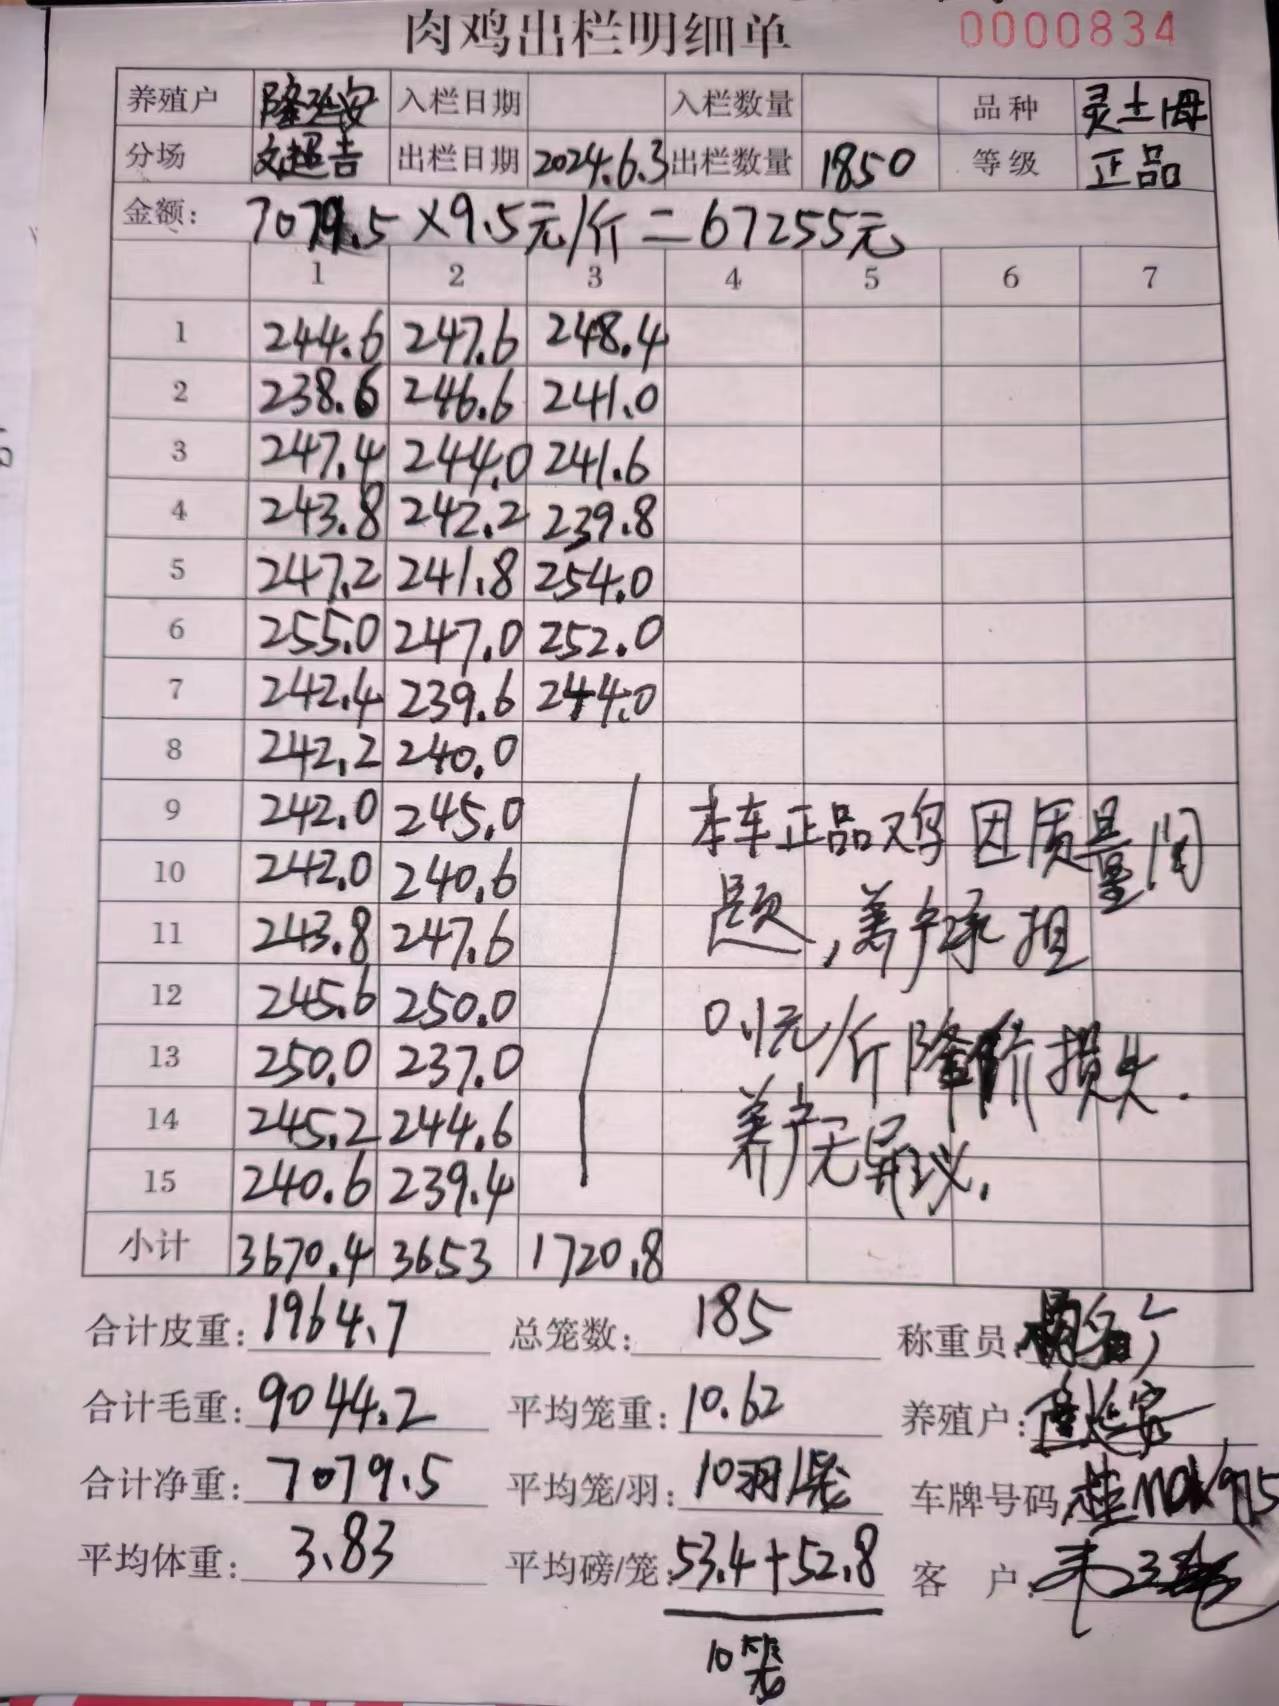 肉鸡出栏明细单 0000834
养殖户 入栏日期 入栏数量 品种 灵土母
分场 文超吉 出栏日期 2024.6.3 出栏数量 1850 等级 正品
金额: 7079.5×9.5元/斤=67255元
1 2 3 4 5 6 7
1 244.6 247.6 248.4
2 238.6 246.6 241.0
3 247.4 244.0 241.6
4 243.8 242.2 239.8
5 247.2 241.8 254.0
6 255.0 247.0 252.0
7 242.4 239.6 244.0
8 242.2 240.0
9 242.0 245.0
10 242.0 240.6
11 243.8 247.6
12 245.6 250.0
13 250.0 237.0
14 245.2 244.6
15 240.6 239.4
本车正品鸡因质量问
题,养户承担
0.1元/斤降价损失.
养户无异议.
小计 3670.4 3653 1720.8
合计皮重: 1964.7 总笼数: 185 称重员:
合计毛重: 9044.2 平均笼重: 10.62 养殖户:
合计净重: 7079.5 平均笼/羽: 10羽/笼 车牌号码
平均体重: 3.83 平均磅/笼: 53.4+52.8 客 户:
10笼